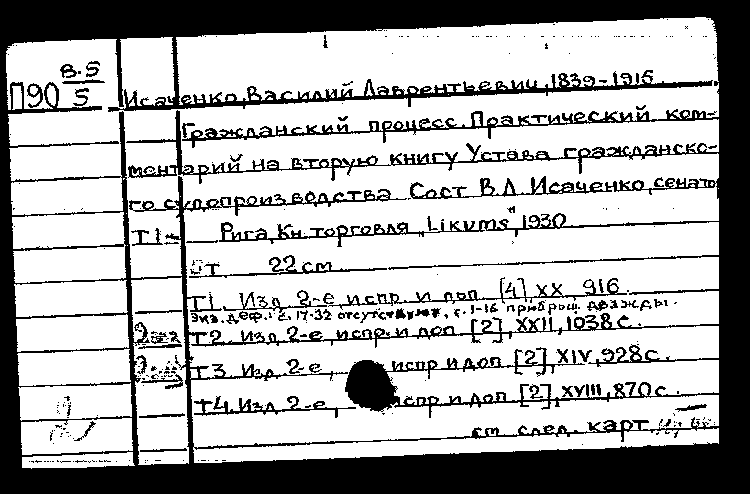 П90 В.5/5
Исаченко, Василий Лаврентьевич, 1839-1915.
Гражданский процесс. Практический ком-
ментарий на вторую книгу Устава гражданско-
го судопроизводства Сост В.Л. Исаченко, сенатор
Т1- Рига, Кн. торговля "Likums", 1930
т 22 см
Т1. Изд 2-е, испр. и доп [4] XX 916.
Экз. деф.: с. 17-32 отсутствуют, с. 1-16 приброш. дважды.
2 экз Т2. Изд 2-е, испр. и доп [2], XXII, 1038 с.
Т3 Изд 2-е, испр и доп. [2], XIV, 928 с.
Т4. Изд 2-е, испр и доп [2], XVIII, 870 с.
2
см след. карт